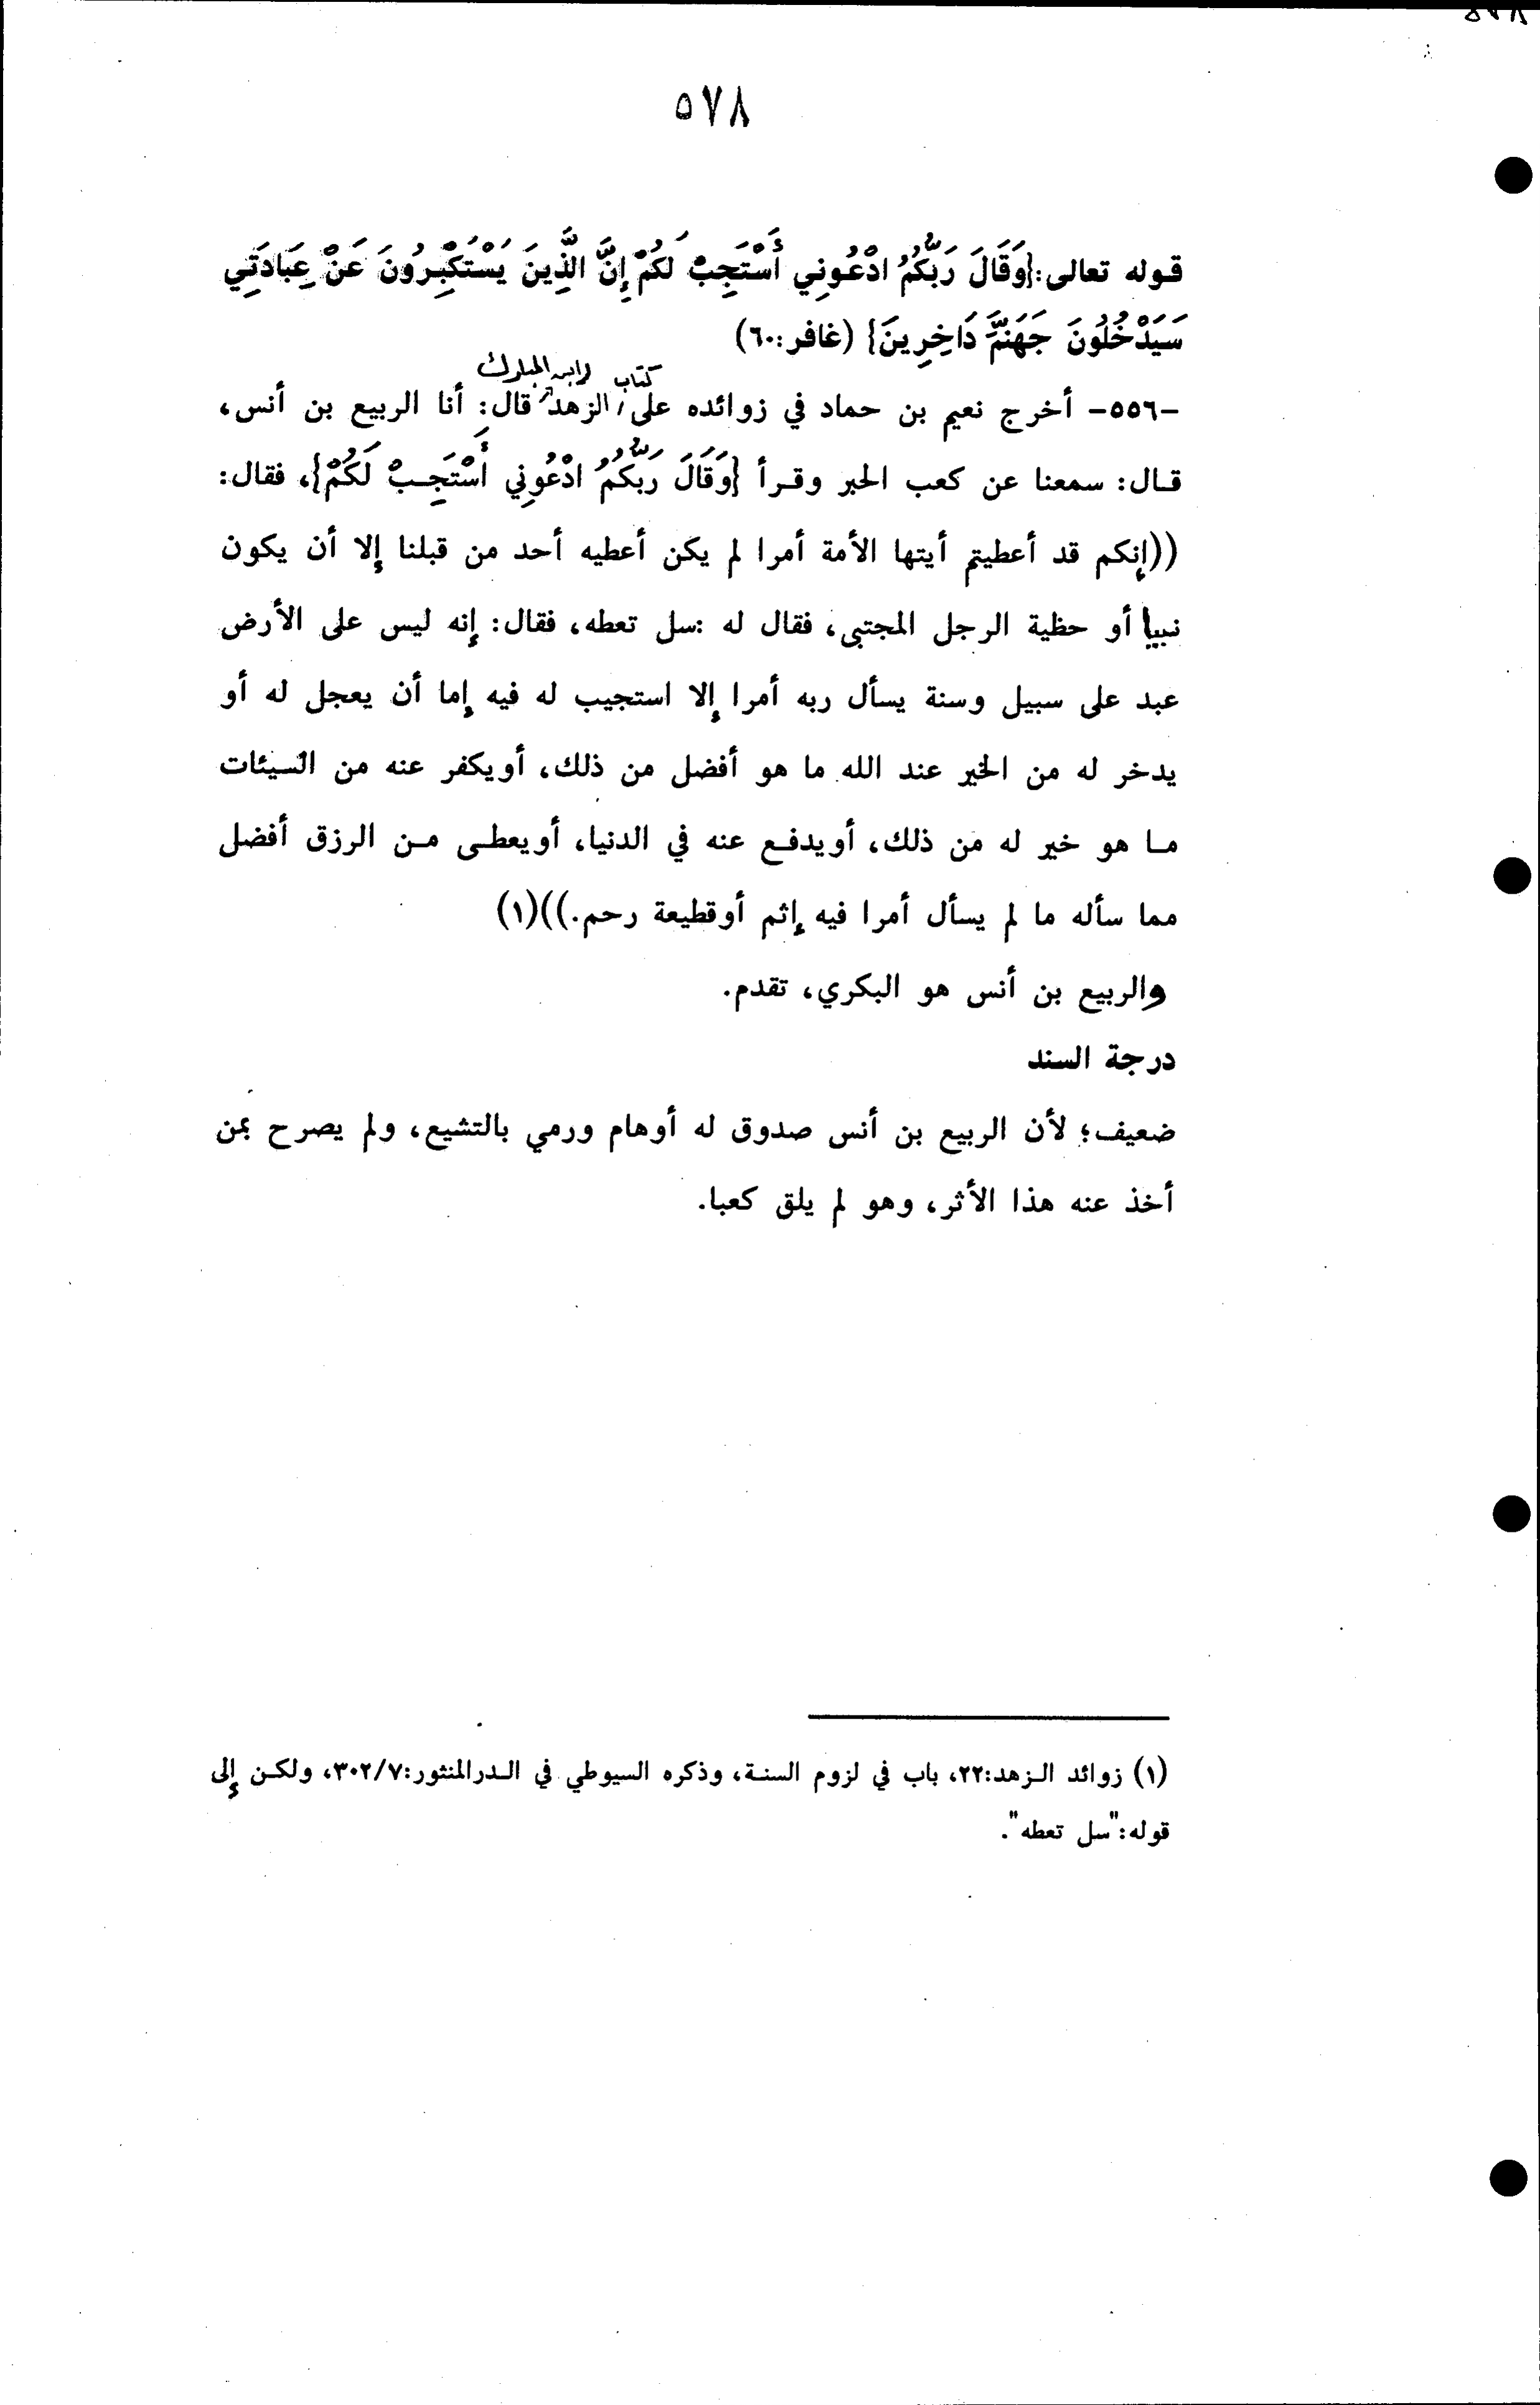 ٥٧٨
قوله تعالى:{وَقَالَ رَبُّكُمُ ادْعُونِي أَسْتَجِبْ لَكُمْ إِنَّ الَّذِينَ يَسْتَكْبِرُونَ عَنْ عِبَادَتِي
سَيَدْخُلُونَ جَهَنَّمَ دَاخِرِينَ} (غافر:٦٠)
كتاب لابن المبارك
-٥٥٦- أخرج نعيم بن حماد في زوائده على الزهد قال: أنا الربيع بن أنس،
قال: سمعنا عن كعب الحبر وقرأ {وَقَالَ رَبُّكُمُ ادْعُونِي أَسْتَجِبْ لَكُمْ}، فقال:
((إنكم قد أعطيتم أيتها الأمة أمرا لم يكن أعطيه أحد من قبلنا إلا أن يكون
نبيا أو حظية الرجل المجتبى، فقال له :سل تعطه، فقال: إنه ليس على الأرض
عبد على سبيل وسنة يسأل ربه أمرا إلا استجيب له فيه إما أن يعجل له أو
يدخر له من الخير عند الله ما هو أفضل من ذلك، أويكفر عنه من السيئات
ما هو خير له من ذلك، أويدفع عنه في الدنيا، أويعطى من الرزق أفضل
مما سأله ما لم يسأل أمرا فيه إثم أوقطيعة رحم.))(١)
والربيع بن أنس هو البكري، تقدم.
درجة السند
ضعيف؛ لأن الربيع بن أنس صدوق له أوهام ورمي بالتشيع، ولم يصرح بمن
أخذ عنه هذا الأثر، وهو لم يلق كعبا.
(١) زوائد الزهد:٢٢، باب في لزوم السنة، وذكره السيوطي في الدرالمنثور:٣٠٢/٧، ولكن إلى
قوله:"سل تعطه".